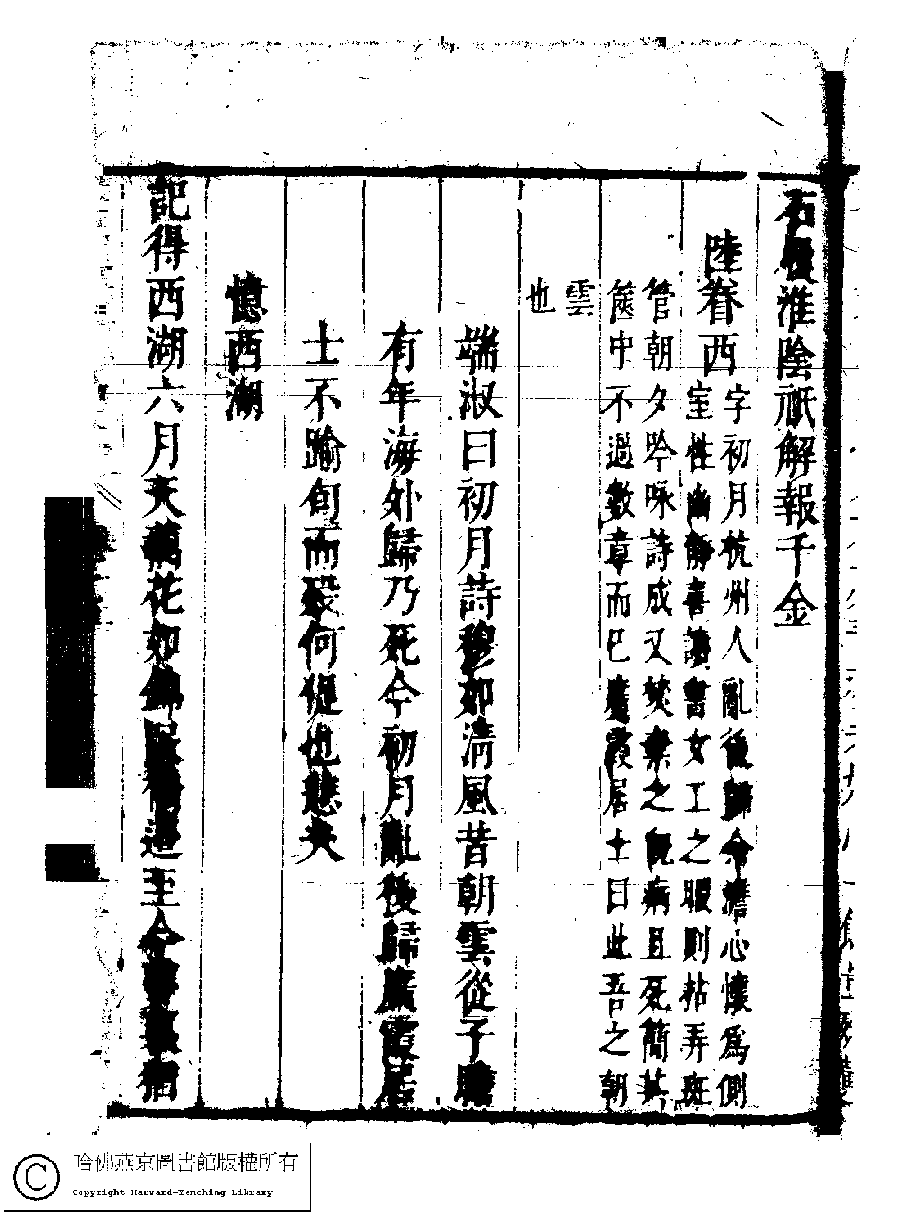 右　淮陰祇解報千金
陸眷西
字初月杭州人亂後歸余澹心懷為側
室性幽靜喜讀書女工之暇則拈弄斑
管朝夕吟咏詩成又焚棄之視病且死簡其
篋中不過數章而已廣霞居士曰此吾之朝
雲
也
端淑曰初月詩穆如清風昔朝雲從子瞻
有年海外歸乃死今初月亂後歸廣霞居
士不踰旬而殁何促也悲夫
憶西湖
記得西湖六月天藕花如錦　　邊至今　　猶
哈佛燕京圖書館版權所有
Copyright Harvard-Yenching Library